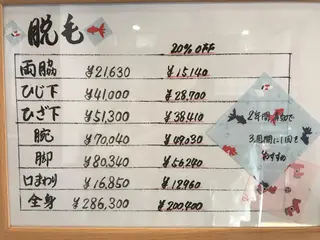 脱毛
20% OFF
両脇 ¥21,630 ¥15,140
ひじ下 ¥41,000 ¥28,700
ひざ下 ¥51,300 ¥38,410
腕 ¥70,040
脚 ¥80,340 ¥56,240
口まわり ¥16,850 ¥12960
全身 ¥286,300 ¥200,400
2年間
3週間に1回を
おすすめ